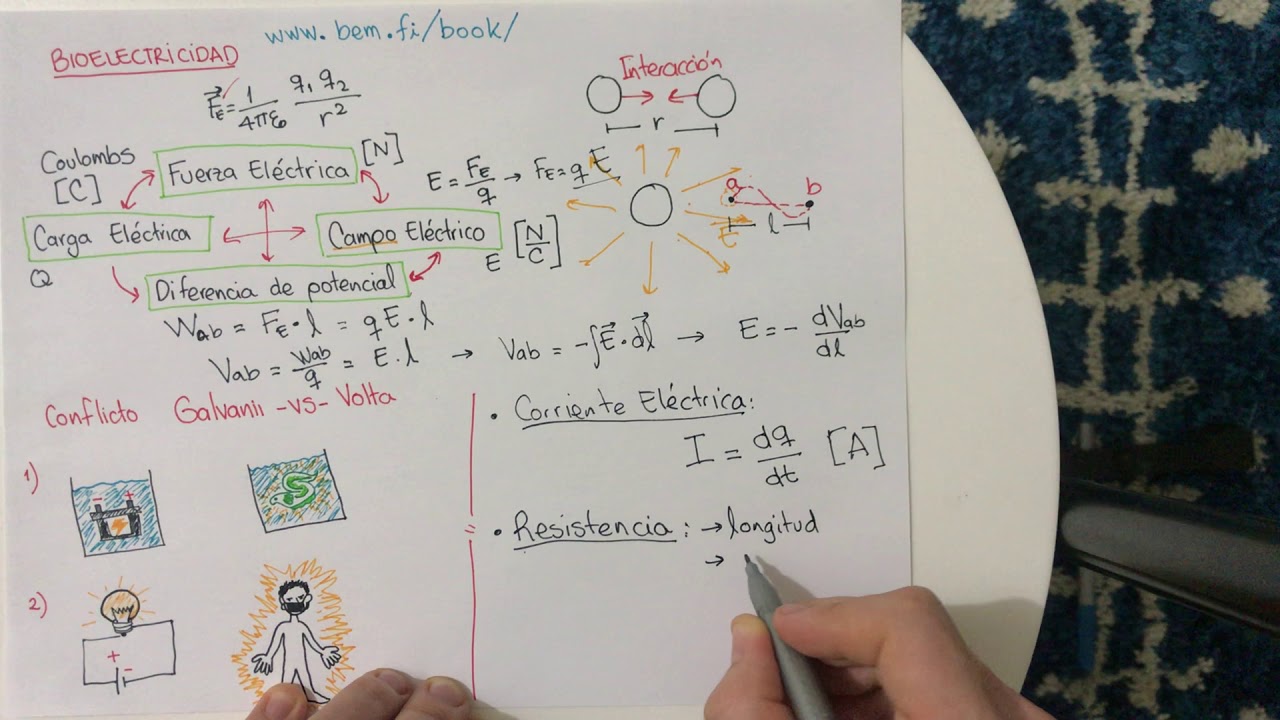 www.bem.fi/book/
BIOELECTRICIDAD
F⃗E = 1/4πε₀ q₁ q₂/r²
Interacción
r
Coulombs
[C]
Fuerza Eléctrica
[N]
E = FE/q → FE = q E
Carga Eléctrica
Q
Campo Eléctrico
E
[N/C]
a
b
E
l
Diferencia de potencial
Wab = FE · l = qE · l
Vab = Wab/q = E · l → Vab = -∫E⃗ · dl⃗ → E = - dVab/dl
Conflicto Galvanii -vs- Volta
• Corriente Eléctrica:
I = dq/dt [A]
1)
- +
= • Resistencia: → longitud
→
2)
+
-